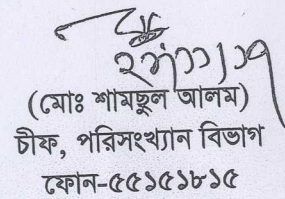 (মোঃ শামছুল আলম)
চীফ, পরিসংখ্যান বিভাগ
ফোন-৫৫১৫১৮১৫